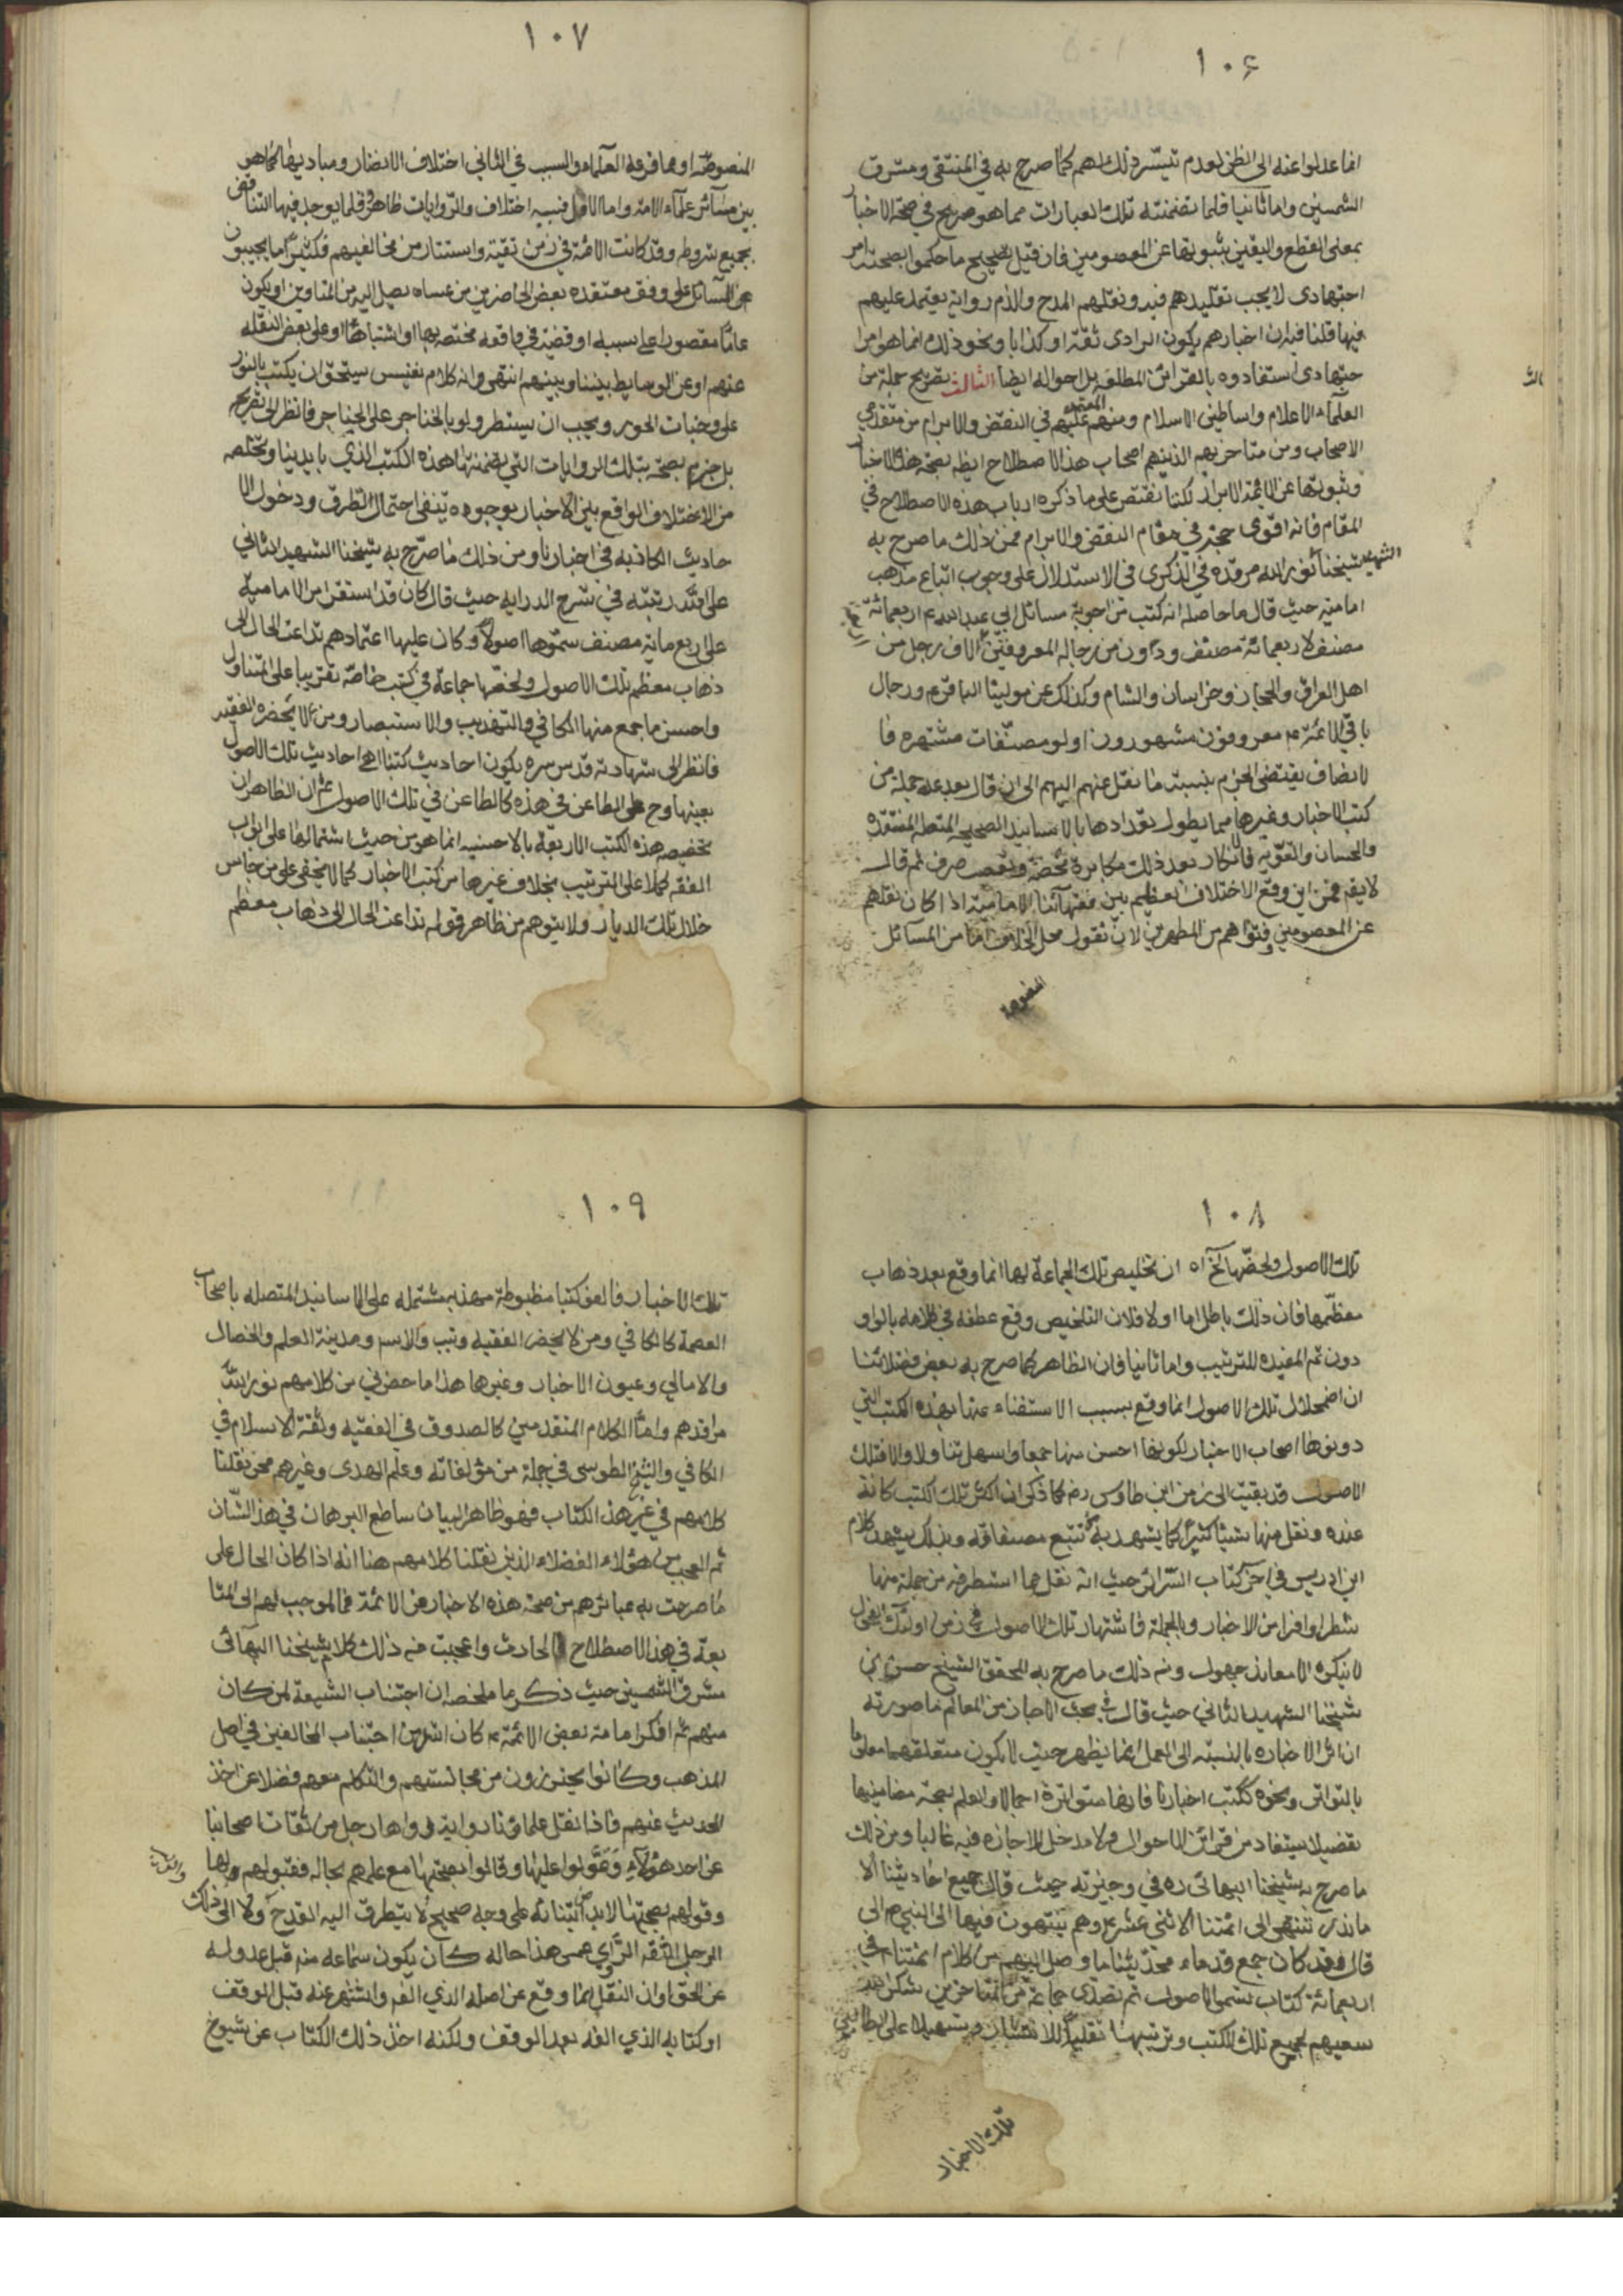 ١٠۶
انما عدلوا عنه الى الظن لعدم تيسّر ذلك لهم كما صرح به في المنتقى ومشرق
الشمسين واما ثانيا فلما تضمنته تلك العبارات مما هو صريح في صحة الاخبار
بمعنى القطع واليقين بثبوتها عن المعصومين فان قيل تصحيح ما حكموا بصحته امر
اجتهادى لا يجب تقليدهم فيه ونقلهم المدح والذم رواية يعتمد عليهم
فيها قلنا فيه ان اخبارهم بكون الراوى ثقة او كذابا ونحو ذلك انما هو امر
جتهادى استفادوه بالقرائن المطلعة بل احواله ايضا الثالث تصريح جملة من
العلماء الاعلام واساطين الاسلام ومنهم المعتمد عليهم في النقض والابرام من متقدمي
الاصحاب ومن متاخريهم الذينهم اصحاب هذا الاصطلاح ايظه بصحة هذه الاخبار
وثبوتها عن الائمة الابرار لكنا نقتصر على ما ذكره ارباب هذه الاصطلاح في
المقام فانه اقوى حجة في مقام النقض والابرام فمن ذلك ما صرح به
شيخنا الشهيد نور الله مرقده في الذكرى في الاستدلال على وجوب اتباع مذهب
امامية حيث قال ما حاصله انه كتب من اجوبة مسائل ابي عبد الله ع اربعمائة
مصنف لاربعمائة مصنف ودون من رجاله المعروفين اربعة الاف رجل من
اهل العراق والحجاز وخراسان والشام وكذلك عن مولينا الباقر ع ورجال
باقي الائمة ع معروفون مشهورون اولو مصنّفات مشتهره فا
لانصاف يقتضى الجزم بنسبة ما نقل عنهم اليهم الى ان قال بعد عد جملة من
كتب الاخبار وغيرها مما يطول تعدادها بالاسانيد الصحيحه المتصله المنتقده
والحسان والقويه فالانكار بعد ذلك مكابرة محضة وتعصب صرف ثم قال
لا يقه فمن اين وقع الاختلاف العظيم بين فقهآئنا الامامية اذا كان نقلهم
عن المعصومين وفتواهم من المطهرين لانّ نقول محل الخلاف اما من المسائل
المنصوصة
١٠٧
المنصوصّه او مما فرعه العلماء والسبب في الثاني اختلاف الانضار ومباديها كما هو
بين سآئر علمآء الامة واما الاول فسببه اختلاف والرّوايات ظاهرا وقلما يوجد فيها التناقض
بجميع شروطه وقد كانت الائمة في زمن تقية واستتار من مخالفيهم فكثيرا ما يجيبون
عن السائل على وفق معتقده بعض الحاضرين من عساه يصل اليه من المناوين او يكون
عامّا مقصورا على سببه او قضية في واقعه مختصه بها او اشتباها او على بعض النقله
عنهم او عن الوسايط بيننا وبينهم انتهى وانه كلام نفيس يستحق ان يكتب بالنور
على وجنات الحور ويجب ان يستطر ولو بالخناجر على الحناجر فانظر الى تصريح
بل جزمه بصحة بتلك الروايات التي تضمنتها هذه الكتب الذي بايدينا وتخلصه
من الاختلاف الواقع بين الاخبار بوجوه ينفى احتمال التطرق ودخول الا
حاديث الكاذبه في اخبارنا ومن ذلك ما صرّح به شيخنا الشهيد الثاني
على الله رتبته في شرح الدرايه حيث قال كان قد استقر امر الاماميه
على اربع مايه مصنف سمّوها اصولا وكان عليها اعتمادهم تداعت الحال الى
ذهاب معظم تلك الاصول ولخصّها جماعة في كتب خاصّة تقريبا على المتناول
واحسن ما جمع منها الكافي والتهذيب والاستبصار ومن لا يحضره الفقيه
فانظر الى شهادته قدس سره بكون احاديث كتبنا هى احاديث تلك الاصول
بعينها وح على الطاعن في هذه كالطاعن في تلك الاصول ثم ان الظاهر ان
تخصيصه هذه الكتب الاربعة بالاحسنيه انما هو من حيث اشتمالها على ابواب
الفقه كملا على الترتيب بخلاف غيرها من كتب الاخبار كما لا يخفى على من جاس
خلال تلك الديار ولا يتوهم من ظاهر قوله تداعت الحال الى ذهاب معظم
١٠٨
تلك الاصول ولخصّها آلخ اه ان تخليص تلك الجماعة لها انما وقع بعد ذهاب
معظّمها فان ذلك باطل اما اولا فلان التلخيص وقع عطفه في كلامه بالواو
دون ثم المفيده للترتيب واما ثانيا فان الظاهر كما صرح به بعض فضلائنا
ان اضمحلال تلك الاصول انما وقع بسبب الاستغناء عنها بهذه الكتب التي
دونوها اصحاب الاخبار لكونها احسن منها جمعا واسهل تناولا والا فتلك
الاصول قد بقيت الى زمن ابن طاوس رضه كما ذكر ان اكثر تلك الكتب كانة
عنده ونقل منها شيئا كثيرا كما يشهد به تتبع مصنفاته وبذلك يشهد كلام
ابن ادريس في آخر كتاب السّرائر حيث انه نقل مما استطرفه من جملة منها
شطرا وافرا من الاخبار وبالجملة فاشتهار تلك الاصول في زمن اولئك الفحول
لا ينكره الا معاند جهول ومنه ذلك ما صرح به المحقق الشيخ حسن بن
شيخنا الشهيد الثاني حيث قال في بحث الاجازه من المعالم ما صورته
ان اثر الاجازه بالنسبه الى العمل انما يظهر حيث لا يكون متعلقهما معلوما
بالتواتر ونحوه ككتب اخبارنا فانها متواترة اجمالا والعلم بصحة مضامينها
تفصيلا يستفاد من قرائن الاحوال ولا مدخل للاجازه فيه غالبا ومن ذلك
ما صرح به شيخنا البهائى ره في وجيزته حيث قال جميع احاديثنا الا
ما ندر تنتهى الى ائمتنا الاثنى عشر ع وهم ينتهون فيها الى النبي ص الى
قال وقد كان جمع قدماء محدّثينا ما وصل اليهم من كلام ائمتنا ع في
اربعمائة كتاب تسمى الاصول ثم تصدّى جماعة من المتاخرين شكر الله
سعيهم لجميع تلك الكتب وترتيبها تقليلا للانتشار وتسهيلا على الطالبين
تلك الاخبار
١٠٩
تلك الاخبار فالفو كتبا مظبوطة مهذبه مشتمله على الاسانيد المتصله باصحاب
العصمة كالكافي ومن لا يحضر الفقيه وتيب والابسر ومدينة العلم والخصال
والامالي وعيون الاخبار وغيرها هذا ما حضرني من كلامهم نور الله
مراقدهم وامّا الكلام المتقدمين كالصدوق في الفقيه وثقة الاسلام في
الكافي والشيخ الطوسى في جملة من مؤلفاته وعلم الهدى وغيرهم ممن نقلنا
كلامهم في غير هذا الكتاب فهو ظاهر البيان ساطع البرهان في هذ الشّان
ثم العجب من هؤلاء الفضلاء الذين نقلنا كلامهم هنا انه اذا كان الحال على
ما صرحت به عبائرهم من صحة هذه الاخبار عن الائمة فما الموجب لهم الى المتا
بعة في هذا الاصطلاح الحادث واعجبت منه ذلك كلام شيخنا البهآئى
مشرق الشمسين حيث ذكر ما ملخصه ان اجتناب الشيعة لمن كان
منهم ثم انكر امامة بعض الائمة ع كان اشد من اجتناب المخالفين في اصل
المذهب وكانوا يحترزون من مجالستهم والتكلم معهم فضلا عن اخذ
الحديث عنهم فاذا نقل علماؤنا رواية رواها رجل من ثقات اصحابنا
عن احد هؤلآء وعوّلوا عليها وقالوا بصحتها مع علمهم بحاله فقبولهم لها
وقولهم بصحتها لا بد من ابتنائه على وجه صحيح لا يتطرق اليه القدح ولا الى ذلك
الرجل الثقه الراوي عمن هذا حاله كان يكون سماعه منه قبل عدوله
عن الحق او ان النقل انما وقع عن اصله الذي الفه واشتهر عنه قبل الوقف
او كتابه الذي الفه بعد الوقف ولكنه اخذ ذلك الكتاب عن شيوخ